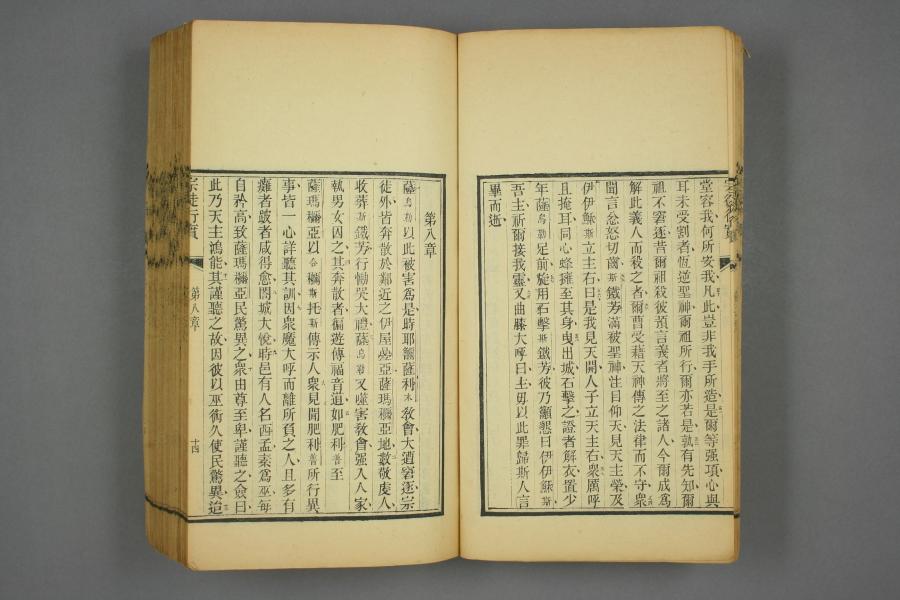 堂容我何所安我凡此豈非我手所造是爾等强項心與
耳未受割者恆逆聖神爾祖所行爾亦若是孰有先知爾
祖不窘逐昔爾祖殺彼預言義者將至之諸人今爾成爲
解此義人而殺之者爾曹受藉天神傳之法律而不守衆
聞言忿怒切齒斯鐵芳滿被聖神注目仰天見天主榮及
伊伊穌斯立主右曰是我見天開人子立天主右衆厲呼
且掩耳同心蜂擁至其身曳出城石擊之證者解衣置少
年薩烏勒足前旋用石擊斯鐵芳彼乃籲懇曰伊伊穌斯
吾主祈爾接我靈又曲膝大呼曰主毋以此罪歸斯人言
畢而逝
第八章
薩烏勒以此被害爲是時耶嚕薩利木敎會大遭窘逐宗
徒外皆奔散於鄰近之伊屋叄亞薩瑪襧亞地數敬虔人
收葬斯鐵芳行慟哭大禮薩烏勒又噬害敎會强入人家
執男女囚之其奔散者徧遊傳福音道如肥利普至
薩瑪襧亞以合襧斯托斯傳示人衆見聞肥利普所行異
事皆一心詳聽其訓因衆魔大呼而離所負之人且多有
癱者跛者咸得愈閤城大悅時邑有人名西孟素爲巫每
自矜高致薩瑪襧亞民驚異之衆由尊至卑謹聽之僉曰
此乃天主鴻能其謹聽之故因彼以巫術久使民驚異迨
宗徒行實
第八章
十四